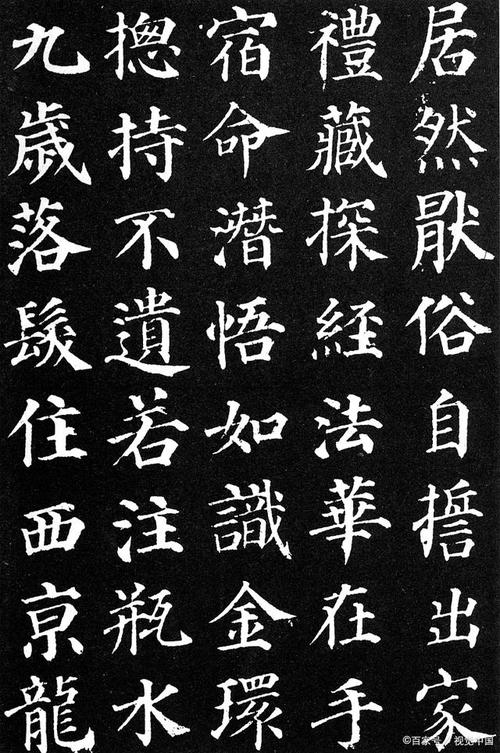 居然猒俗自誓出家
禮藏探經法華在手
宿命潛悟如識金環
揔持不遺若注瓶水
九歲落髮住西亰龍
©百家号/视觉中国